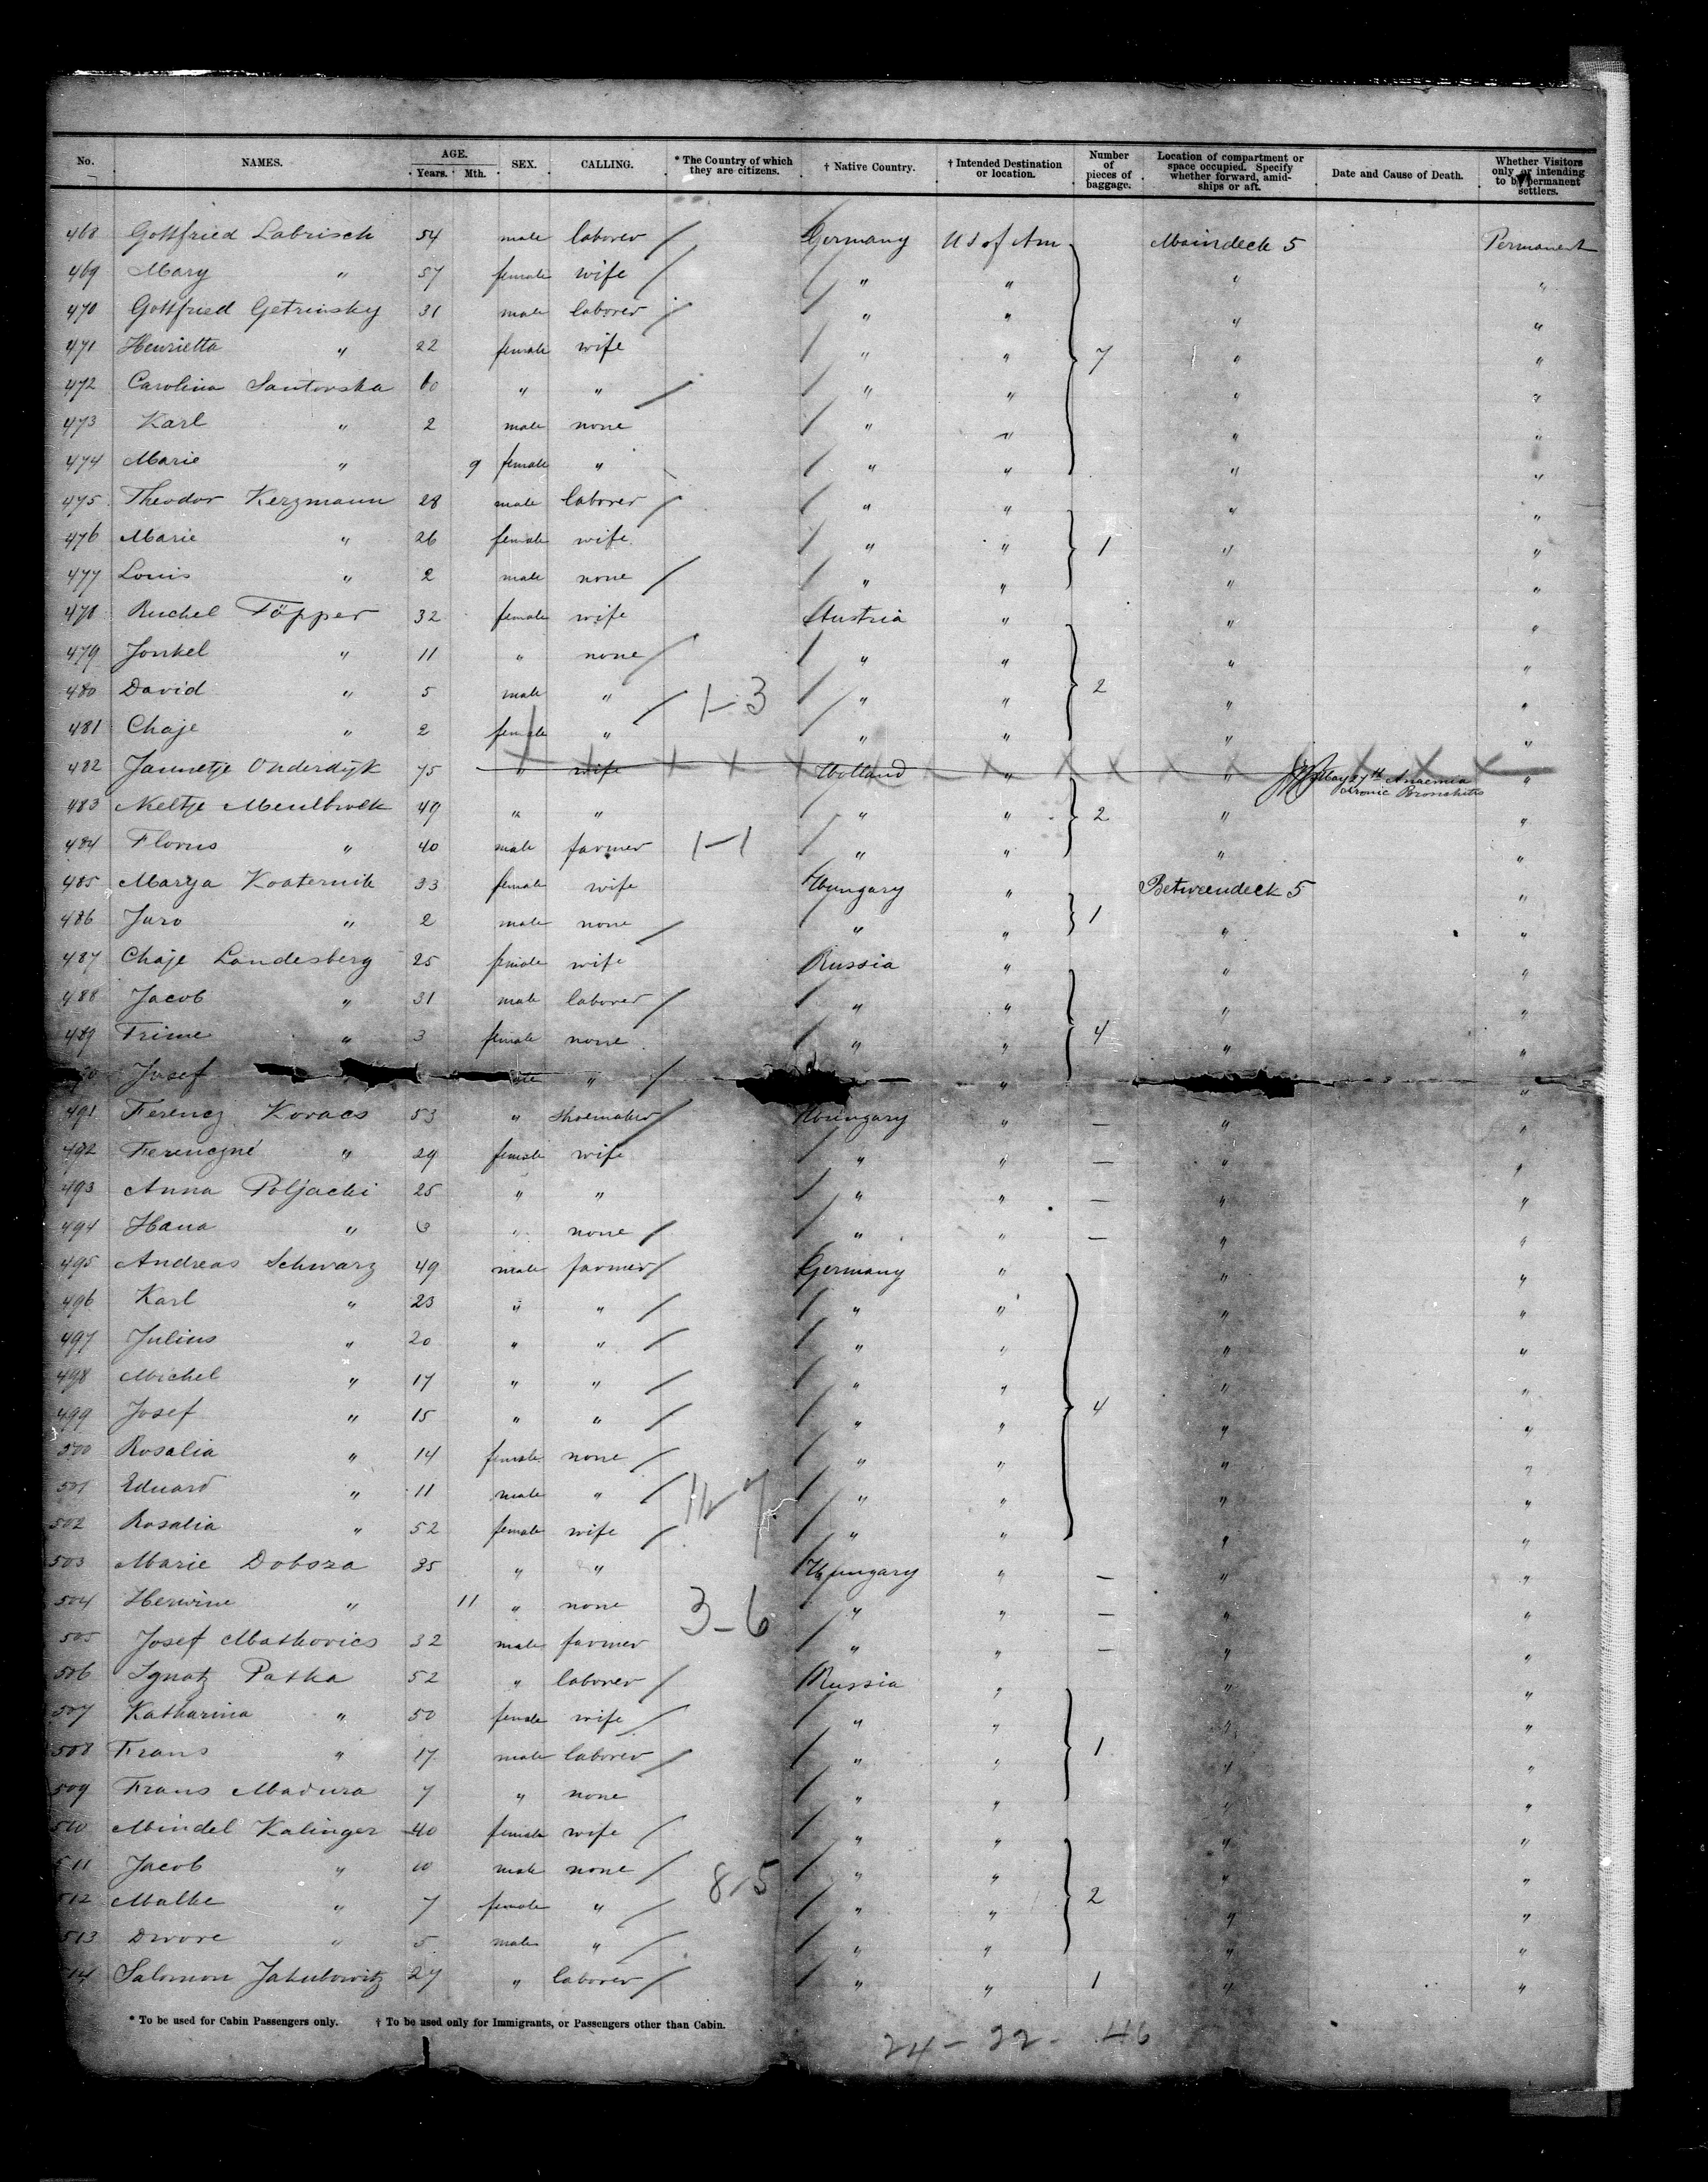 No. NAMES. AGE. Years. Mth. SEX. CALLING. * The Country of which they are citizens. † Native Country. † Intended Destination or location. Number of pieces of baggage. Location of compartment or space occupied. Specify whether forward, amidships or aft. Date and Cause of Death. Whether Visitors only or intending to be permanent settlers.
468 Gottfried Labrisch 54 male laborer / Germany U S of Am Maindeck 5 Permanent
469 Mary " 57 female wife / " " " "
470 Gottfried Getrinsky 31 male laborer / " " " "
471 Henrietta " 22 female wife " " 7 " "
472 Carolina Santovska 60 " " / " " " "
473 Karl " 2 male none " " " "
474 Marie " 9 female " " " " "
475 Theodor Kerzmann 28 male laborer / " " " "
476 Marie " 26 female wife " " 1 " "
477 Louis " 2 male none / " " " "
478 Ruchel Töpper 32 female wife Austria " " "
479 Jonkel " 11 " none / " " " "
480 David " 5 male " / 1-3 " " 2 " "
481 Chaje " 2 female " " " " "
482 Jannetje Onderdyk 75 " wife Holland " " May 27th Anaemia cronic Bronchitis "
483 Neltje Meulbroek 49 " " " " 2 " "
484 Florus " 40 male farmer 1-1 " " " "
485 Marya Koaternik 33 female wife Hungary " Betweendeck 5 "
486 Juro " 2 male none / " " 1 " "
487 Chaje Landesberg 25 female wife Russia " " "
488 Jacob " 31 male laborer / " " " "
489 Frime " 3 female none " " 4 " "
Josef " / " "
491 Ferencz Kovacs 53 " shoemaker / Hungary " — " "
492 Ferenczné " 29 female wife " " — " "
493 Anna Poljacki 25 " " " " — " "
494 Hana " 3 " none / " " — " "
495 Andreas Schwarz 49 male farmer / Germany " " "
496 Karl " 23 " " / " " " "
497 Julius " 20 " " / " " " "
498 Michel " 17 " " / " " " "
499 Josef " 15 " " / " " 4 " "
500 Rosalia " 14 female none / " " " "
501 Eduard " 11 male " / " " " "
502 Rosalia " 52 female wife / " " " "
503 Marie Dobsza 35 " " Hungary " — " "
504 Herwine " 11 " none 3-6 " " — " "
505 Josef Matkovics 32 male farmer " " — " "
506 Ignatz Patka 52 " laborer / Russia " " "
507 Katharina " 50 female wife / " " " "
508 Frans " 17 male laborer / " " 1 " "
509 Frans Madura 7 " none " " " "
510 Mindel Kalinger 40 female wife / " " " "
511 Jacob " 10 male none / 8-5 " " " "
512 Malke " 7 female " / " " 2 " "
513 Dwore " 5 male " / " " " "
514 Salomon Jakubowitz 27 " laborer / " " 1 " "
* To be used for Cabin Passengers only. † To be used only for Immigrants, or Passengers other than Cabin.
24 - 22 - 46